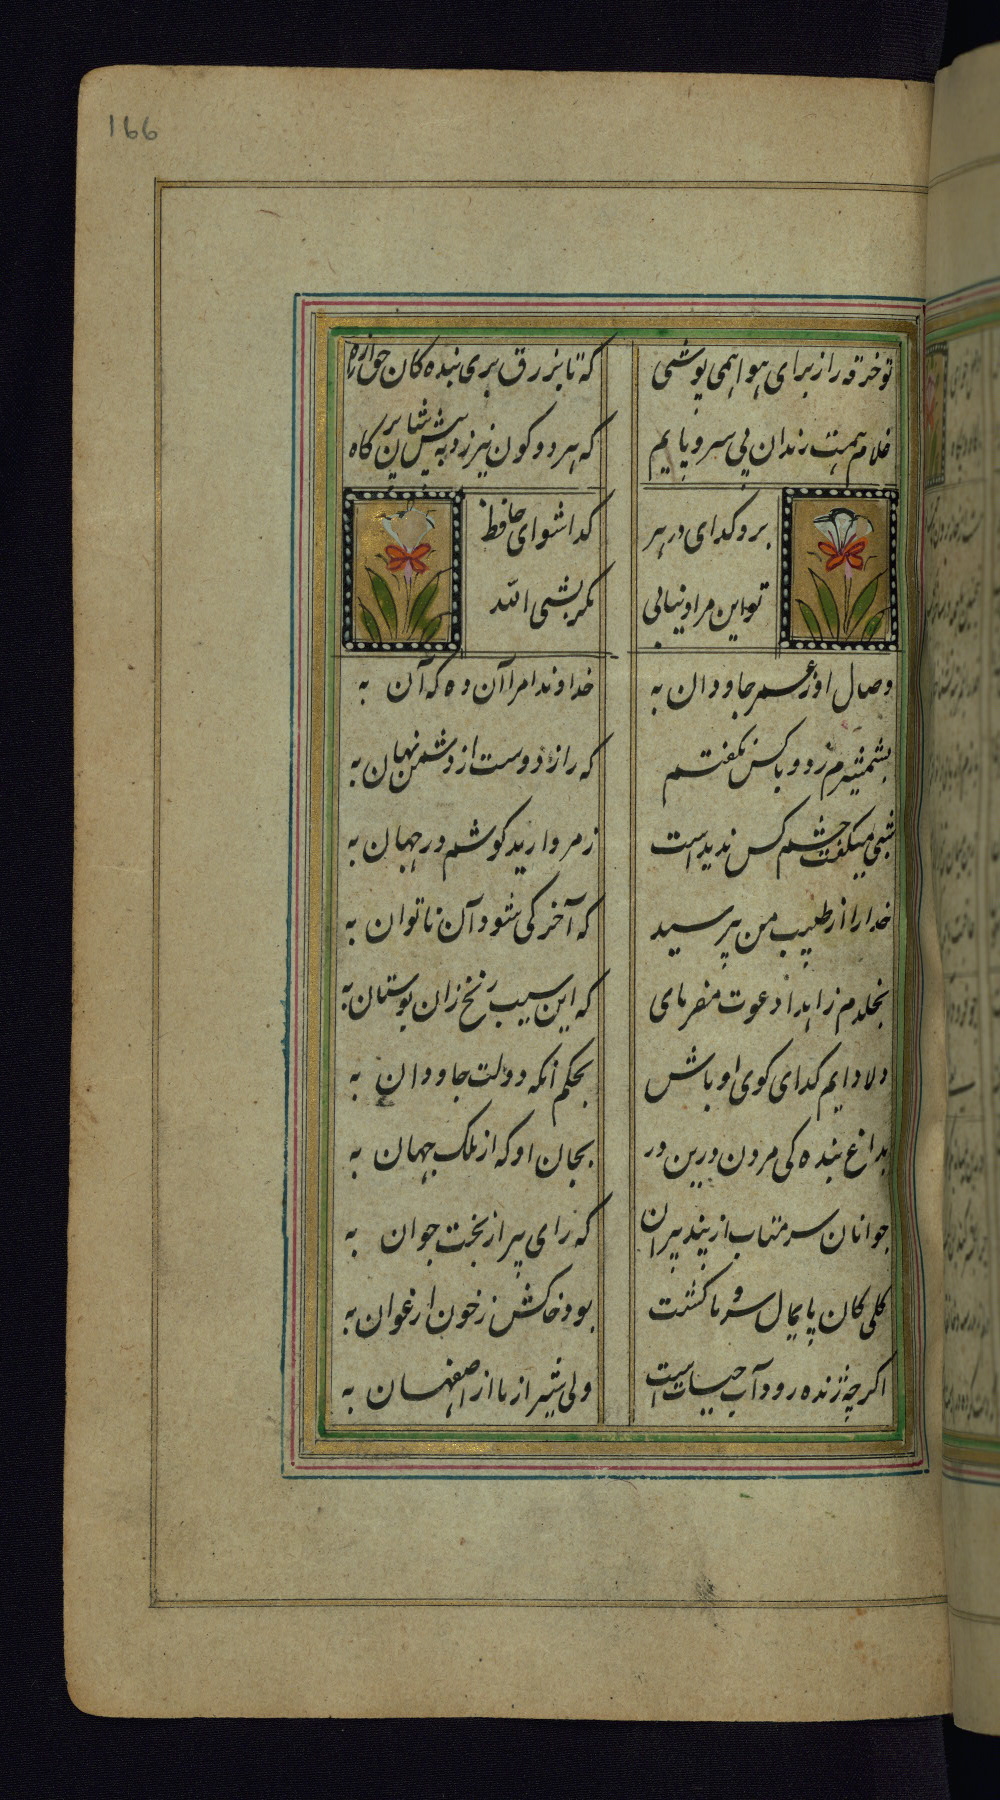 166
تو خرقه را ز برای هوا همی پوشی که تا بزرق بری بنده کان حق از راه
غلام همت رندان بی سر و پایم که هر دو کون نیرزد به پیش شان یر کاه
برو گدای در هر گدا شو ای حافظ
تو این مراد نیابی مکر بشی الله
وصال او ز عمر جاودان به خداوندا مرا آن ده که آن به
بشمشیرم زد و با کس نکفتم که راز دوست از دشمن نهان به
شبی میکفت چشم کس ندید است ز مروارید کوشم در جهان به
خدا را از طبیب من بپرسید که آخر کی شود آن ناتوان به
بخلدم زاهدا دعوت مفرمای که این سیب زنخ زان بوستان به
دلا دایم کدای کوی او باش بحکم آنکه دولت جاودان به
بداغ بنده کی مردن درین در بجان او که از ملک جهان به
جوانان سر متاب از پند پیران که رای پیر از بخت جوان به
کلی کان پایمال سرو ما کشت بود خاکش ز خون ارغوان به
اکرچه زنده رود آب حیات است ولی شیراز ما از اصفهان به